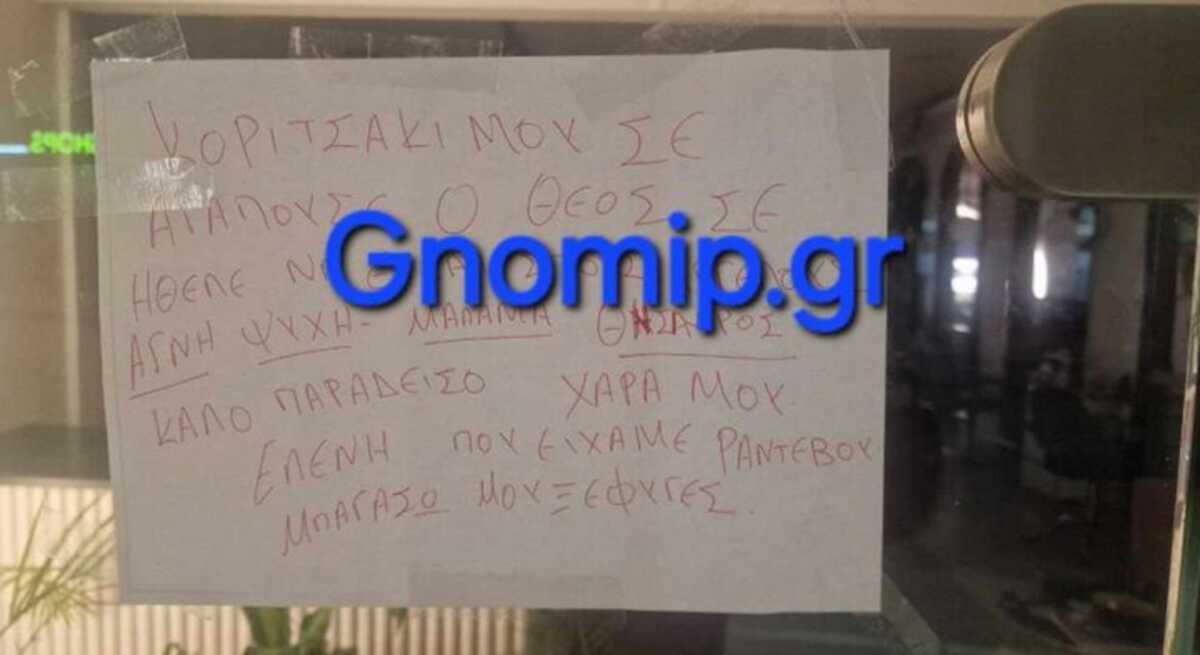 ΚΟΡΙΤΣΑΚΙ ΜΟΥ ΣΕ
ΑΓΑΠΟΥΣΕ Ο ΘΕΟΣ ΣΕ
Gnomip.gr
ΗΘΕΛΕ
ΑΓΝΗ ΨΥΧΗ - ΜΑΛΑΜΑ ΘΗΣΑΥΡΟΣ
ΚΑΛΟ ΠΑΡΑΔΕΙΣΟ ΧΑΡΑ ΜΟΥ.
ΕΛΕΝΗ ΠΟΥ ΕΙΧΑΜΕ ΡΑΝΤΕΒΟΥ
ΜΠΑΓΑΣΩ ΜΟΥ ΞΕΦΥΓΕΣ.